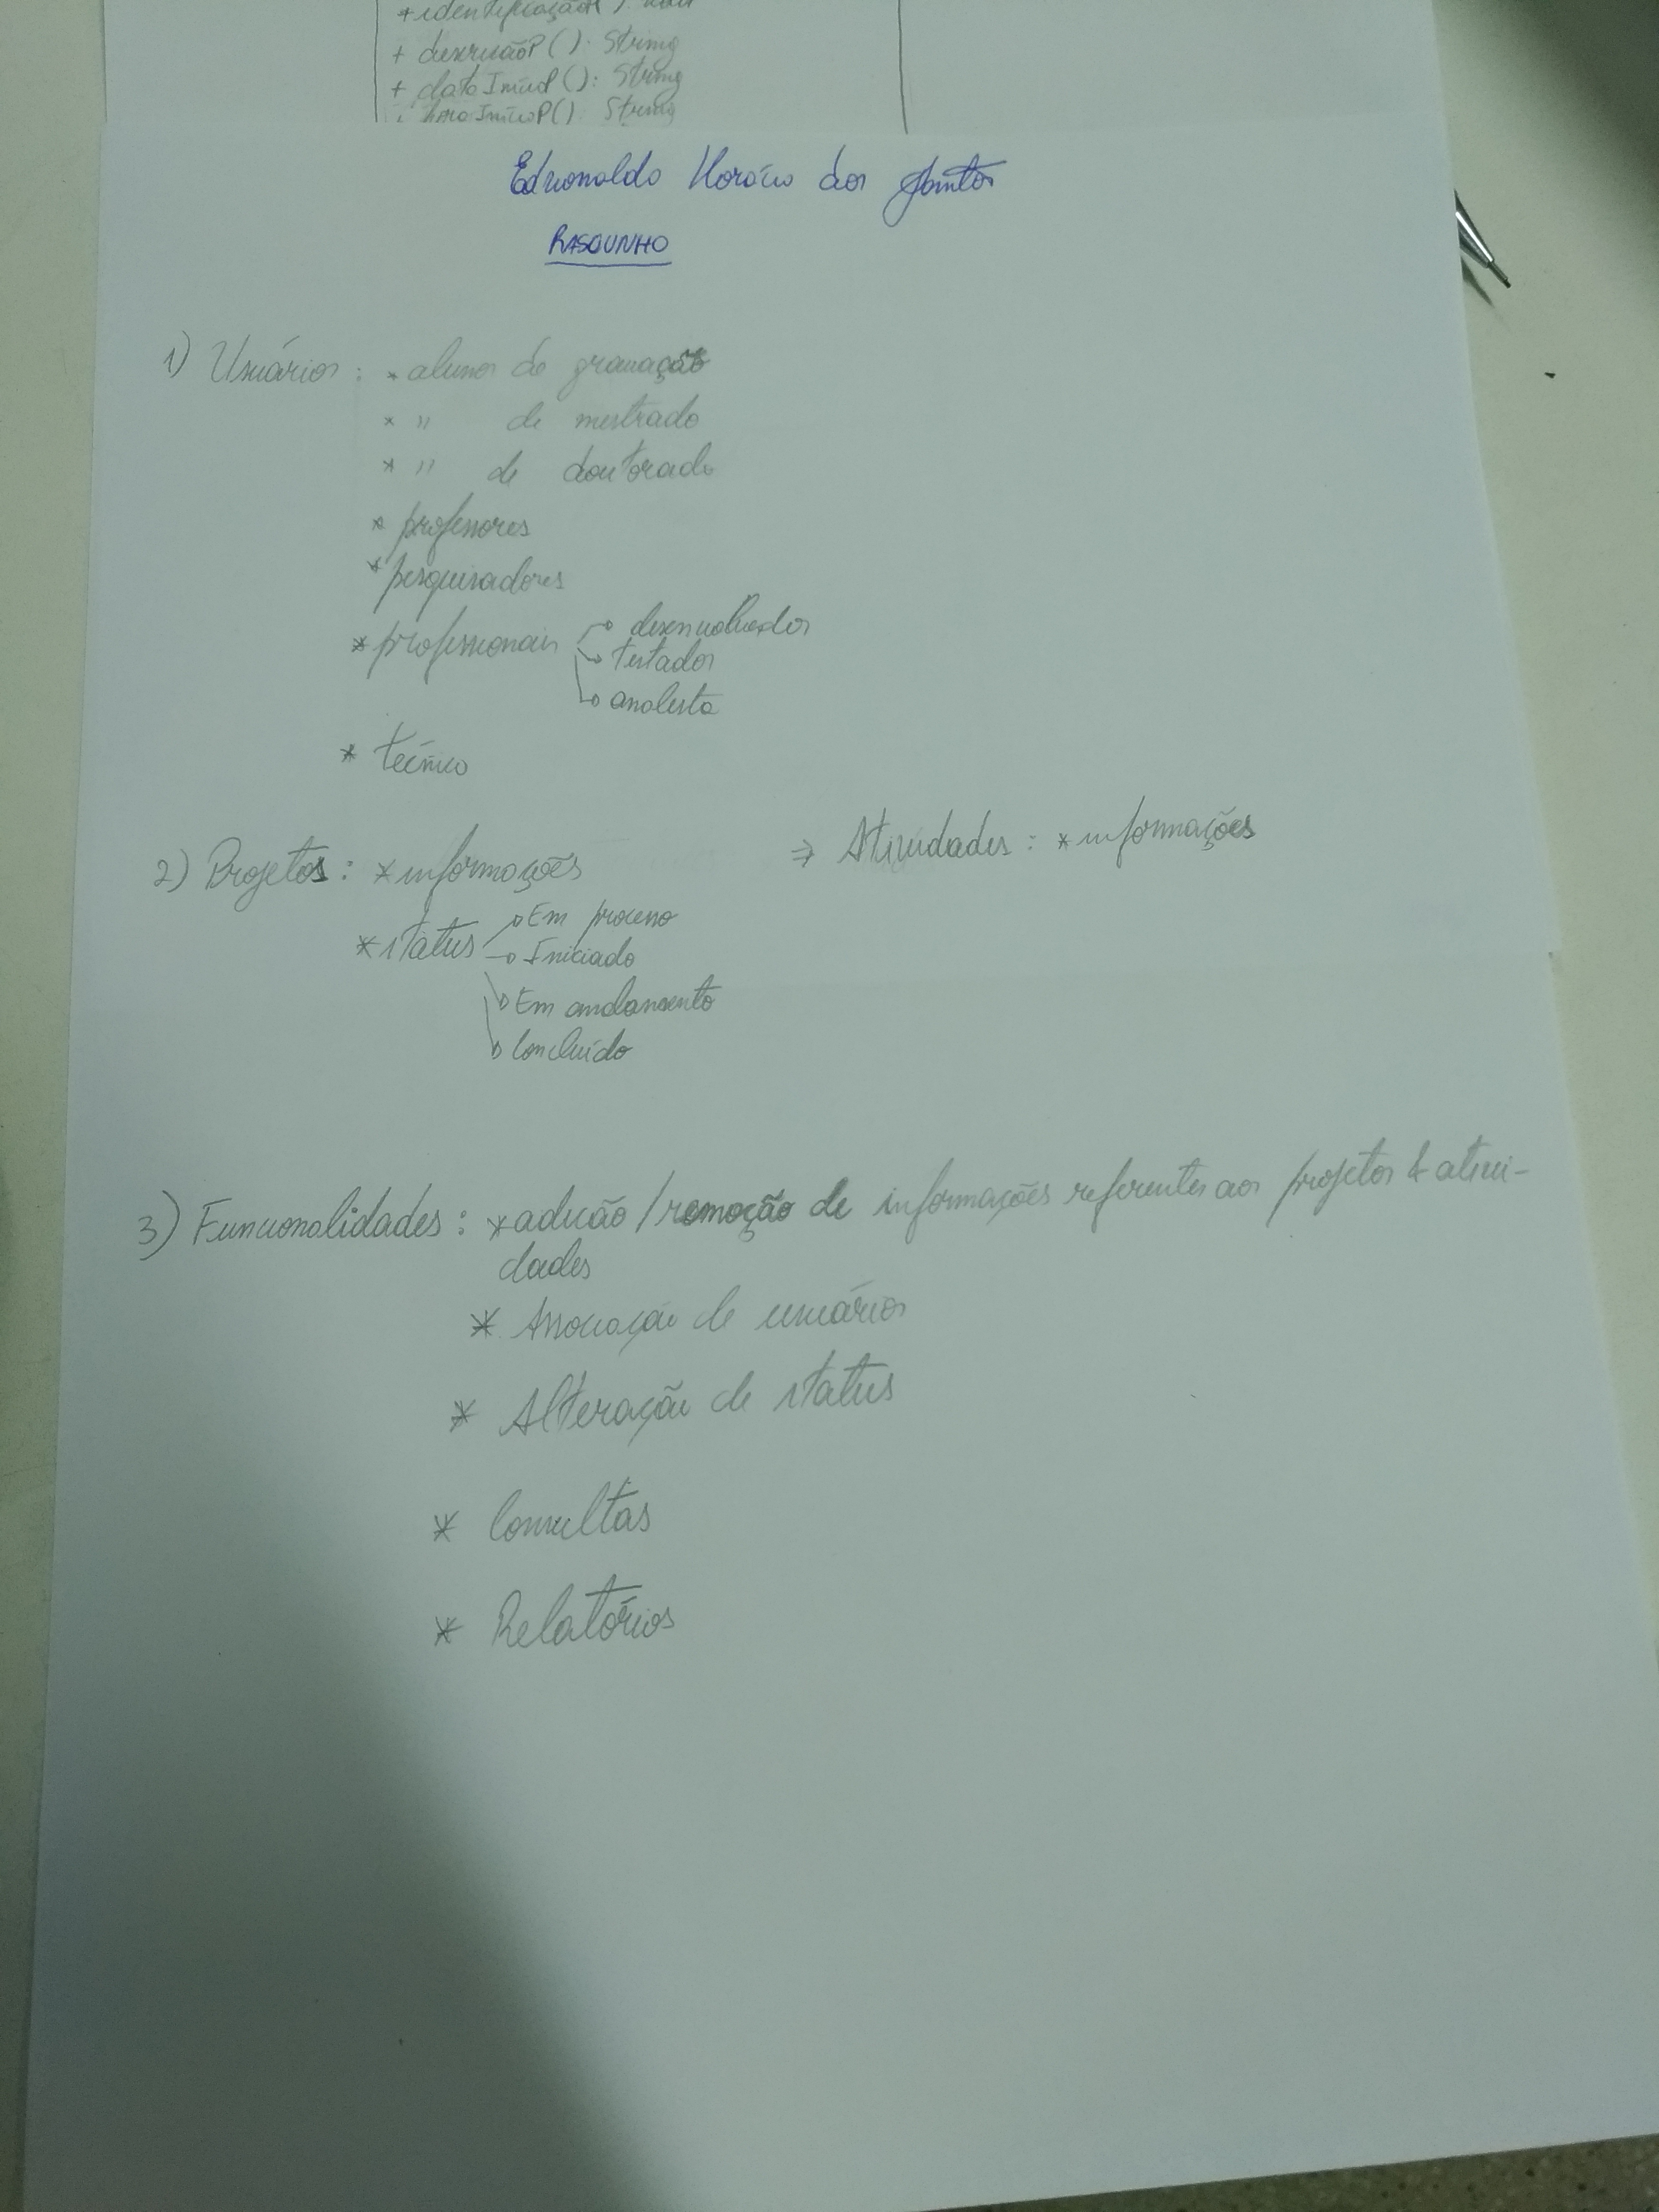 + descriçãoP(): String
+ dataInicioP(): String
horaInícioP(): String
Edvonaldo Horácio dos Santos
RASCUNHO
1) Usuários: * alunos de graduação
* " de mestrado
* " de doutorado
* professores
* pesquisadores
* profissionais → desenvolvedor
→ testador
→ analista
* técnico
2) Projetos: * informações ⇒ Atividades: * informações
* status → Em processo
→ Iniciado
→ Em andamento
→ Concluído
3) Funcionalidades: * adição/remoção de informações referentes aos projetos & ativi-
dades
* Associação de usuários
* Alteração de status
* Consultas
* Relatórios